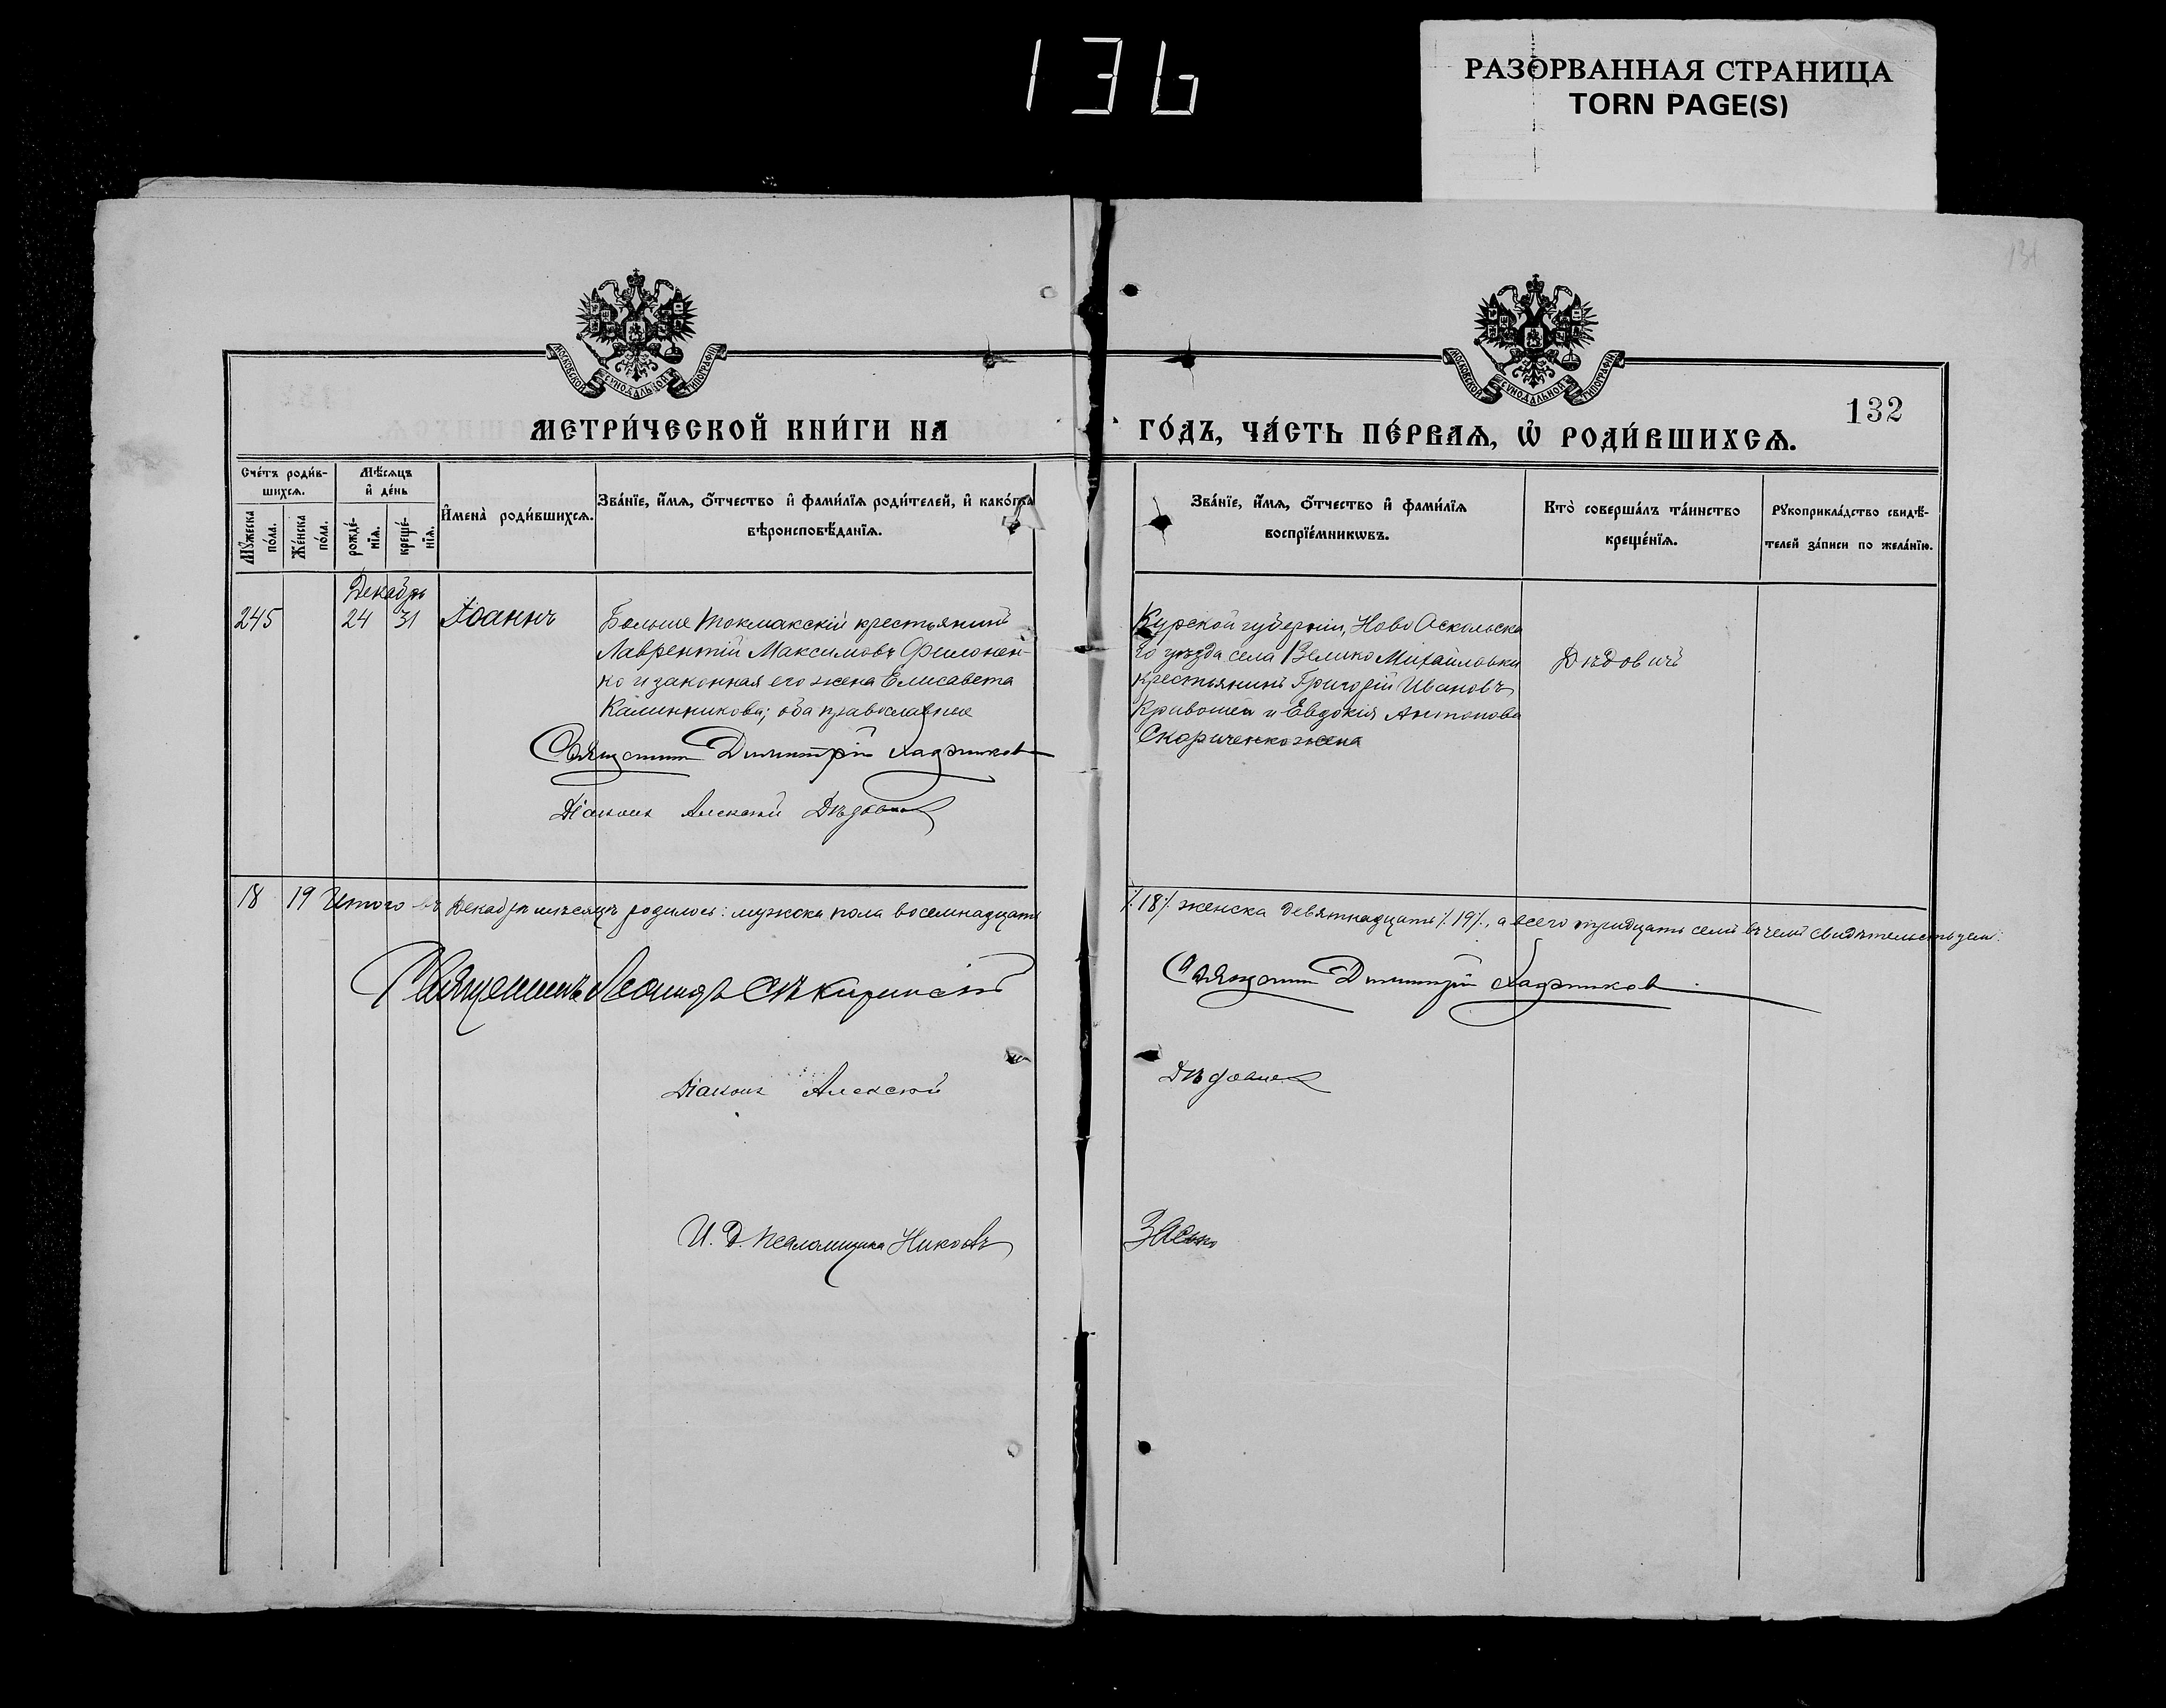 136
РАЗОРВАННАЯ СТРАНИЦА
TORN PAGE(S)
131
МОСКОВСКОЙ СУНОДАЛЬНОЙ ТИПОГРАФІИ
МОСКОВСКОЙ СУНОДАЛЬНОЙ ТИПОГРАФІИ
132
МЕТРИ́ЧЕСКОЙ КНИ́ГИ НА
ГО́ДЪ, ЧА́СТЬ ПЕ́РВАѦ, Ѡ҆ РОДИ́ВШИХСѦ.
Сче́тъ роди́в-
шихсѧ.
Мѣ́сѧцъ
и҆ де́нь
Мꙋ́жеска по́ла.
Же́нска по́ла.
рожде́-нїѧ.
креще́-нїѧ.
И҆мена̀ роди́вшихсѧ.
Зва́нїе, и҆́мѧ, ѻ҆́тчество и҆ фами́лїѧ роди́телей, и҆ како́гѡ
вѣроисповѣ́данїѧ.
Зва́нїе, и҆́мѧ, ѻ҆́тчество и҆ фами́лїѧ
воспрїе́мникѡвъ.
Кто̀ соверша́лъ та́инство
креще́нїѧ.
Рꙋкоприкла́дство свидѣ́-
телей за́писи по жела́нїю.
Декабрь
245 24 31 Іоаннъ
Больше Токмакскій крестьянинъ
Лаврентій Максимовъ Филонен-
ко и законная его жена Елисавета
Калинникова; оба православные
Священникъ Димитрій Хаджиновъ
Діаконъ Алексій Дѣдовичъ
Курской губерніи, Ново Оскольска
го уѣзда села Велико Михайловки
крестьянинъ Григорій Ивановъ
Кривошея и Евдокія Антонова
жена
Дѣдовичъ
18 19 Итого въ Декабрѣ мѣсяцѣ родилось: мужска пола восемнадцать
/18/. женска девятнадцать /19/., а всего тридцать семь въ чемъ свидѣтельствуемъ:
Священникъ Леонидъ
Священникъ Димитрій Хаджиновъ
Діаконъ Алексій
Дѣдовичъ
И. Д. Псаломщика